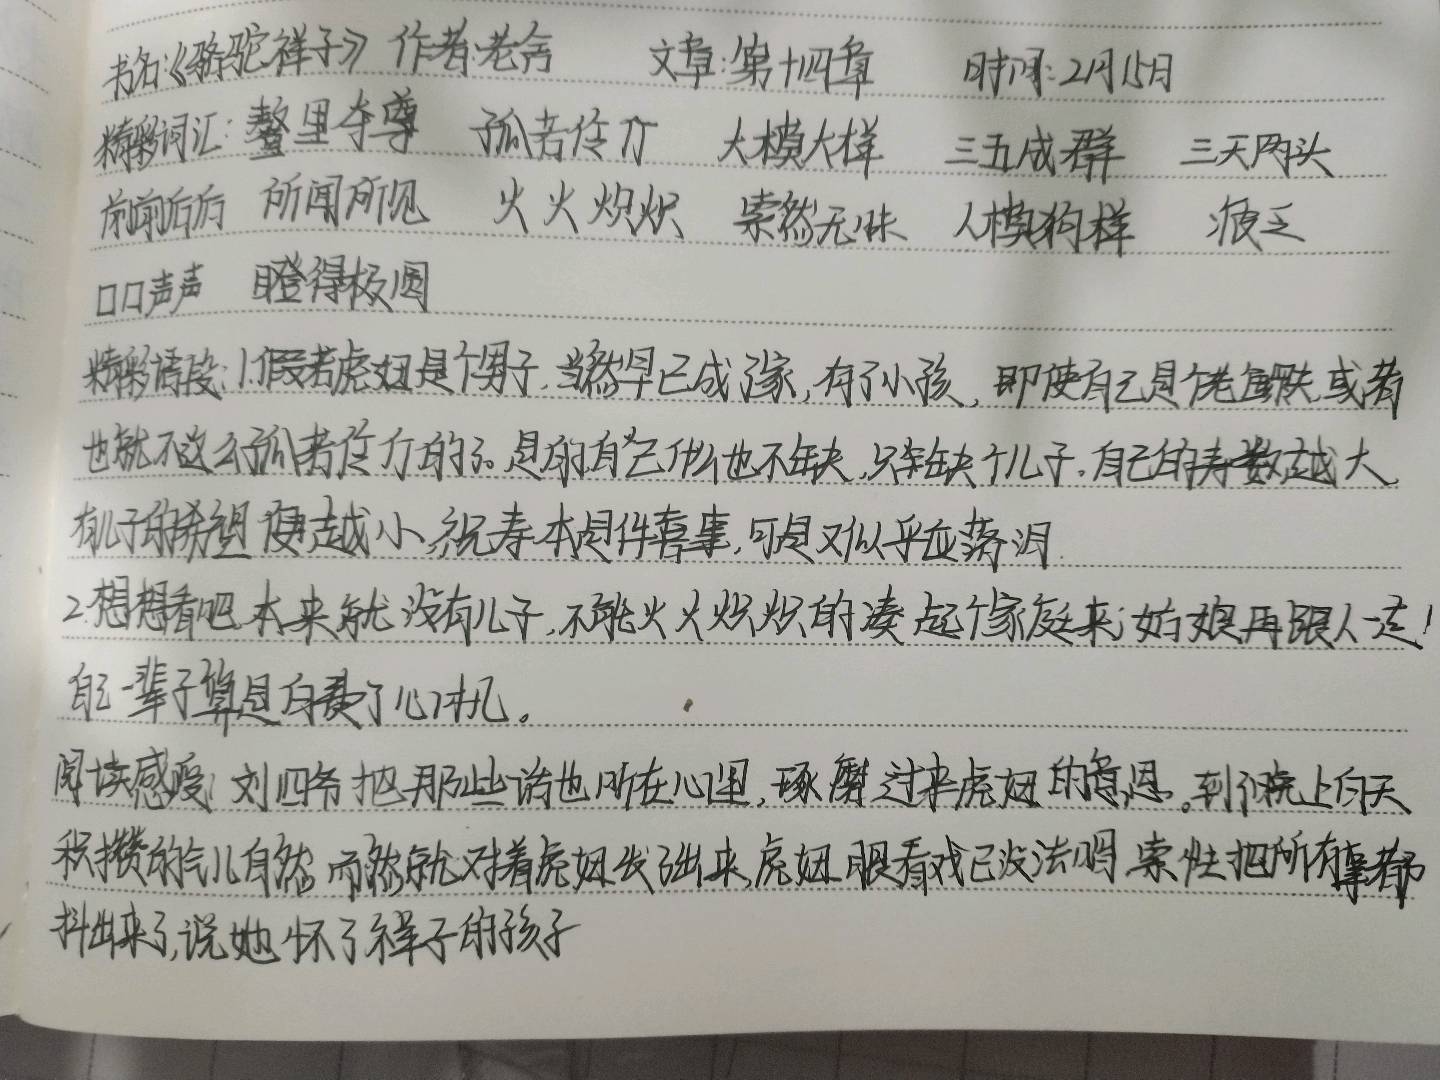 书名:《骆驼祥子》 作者:老舍 文章:第十四章 时间:2月15日
精彩词汇: 鳌里夺尊 孤苦伶仃 大模大样 三五成群 三天两头
前前后后 所闻所见 火火炽炽 索然无味 人模狗样 疲乏
口口声声 瞪得极圆
精彩语段:1.假若虎妞是个男子,当然早已成了家,有了小孩,即使自己是个老鳏夫,或者
也就不这么孤苦伶仃的了。是的,自己什么也不缺,只缺个儿子。自己的寿数越大,
有儿子的希望便越小,祝寿本是件喜事,可是又似乎应落泪.
2.想想看吧,本来就没有儿子,不能火火炽炽的凑起个家庭来;姑娘再跟人一走!
自己一辈子算是白费了心机。
阅读感受:刘四爷把那些话也听在心里,琢磨过来虎妞的意思。到了晚上白天
积攒的气儿自然而然就对着虎妞发了出来,虎妞眼看戏已没法唱,索性把所有事都
抖出来了,说她怀了祥子的孩子